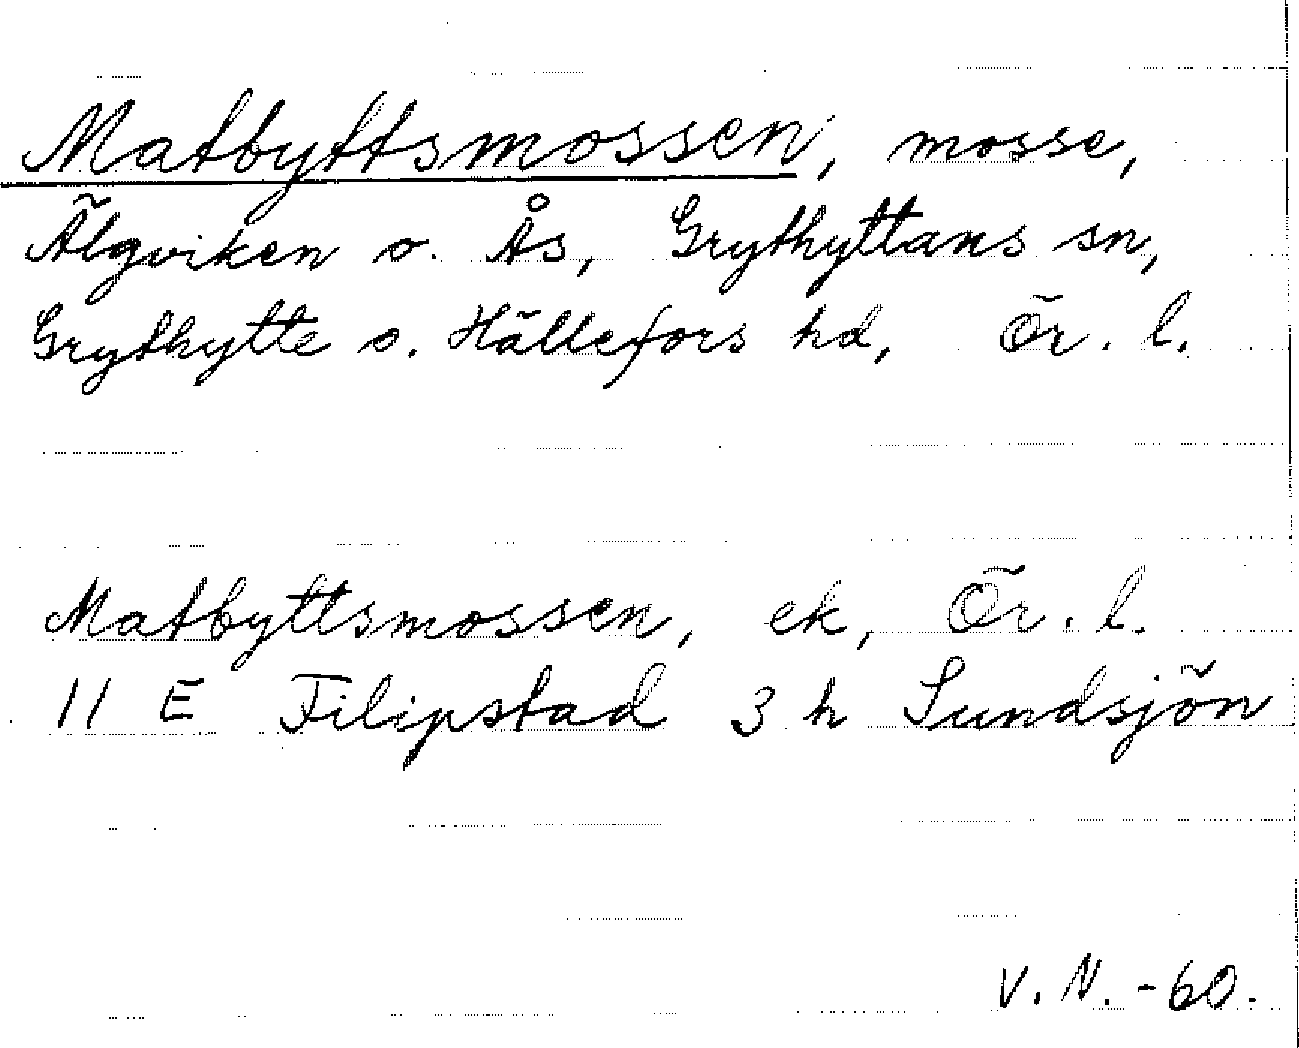 Matbyttsmossen, mosse,
Älgviken o. Ås, Grythyttans sn,
Grythytte o. Hällefors hd, Ör. l.
Matbyttsmossen, ek, Ör. l.
11 E Filipstad 3 h Sundsjön
V. N. -60.